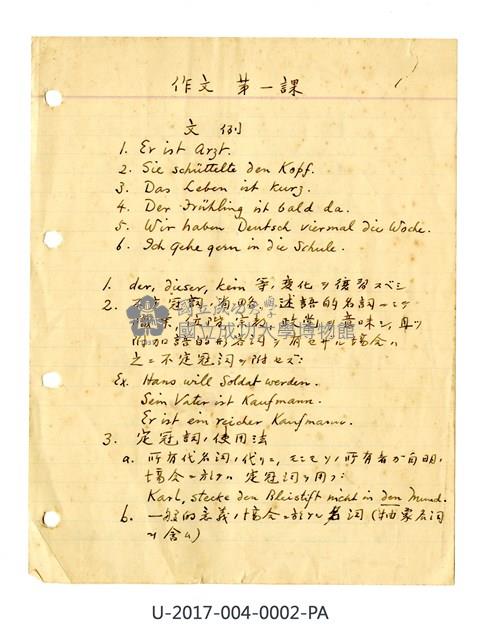 作文 第一課
文例
1. Er ist Arzt.
2. Sie schüttelte den Kopf.
3. Das Leben ist kurz.
4. Der Frühling ist bald da.
5. Wir haben Deutsch viermal die Woche.
6. Ich gehe gern in die Schule.
1. der, dieser, kein 等ノ変化ヲ復習スベシ
2. 不定冠詞ノ省略 述語的名詞ニシテ
職業、位階、宗教、政党ヲ意味シ、且ツ
附加語的形容詞ヲ有セザル場合ハ
之ニ不定冠詞ヲ附セズ:
Ex. Hans will Soldat werden.
Sein Vater ist Kaufmann.
Er ist ein reicher Kaufmann.
3. 定冠詞ノ使用法
a. 所有代名詞ノ代リニ、所有者ガ自明ノ
場合ニ於テハ 定冠詞ヲ用フ:
Karl, stecke den Bleistift nicht in den Mund.
b. 一般的意義ノ場合ニ於ケル名詞 (抽象名詞
ヲ含ム)
國立成功大學
國立成功大學博物館
U-2017-004-0002-PA